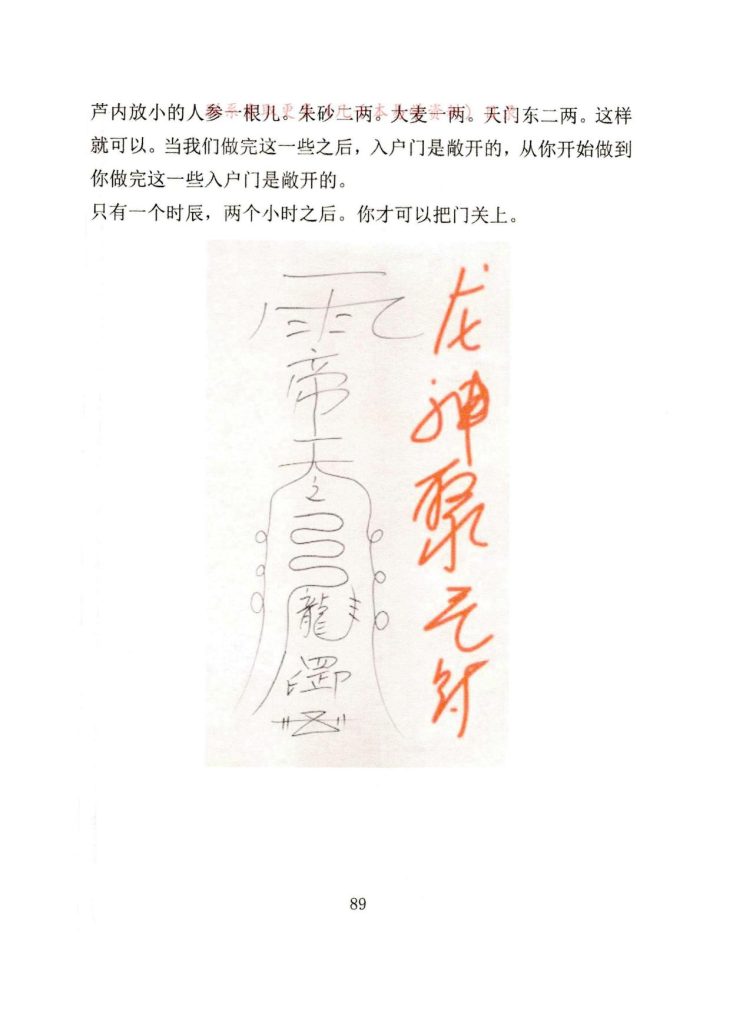 芦内放小的人参一根儿。朱砂二两。大麦一两。天门东二两。这样
就可以。当我们做完这一些之后，入户门是敞开的，从你开始做到
你做完这一些入户门是敞开的。
只有一个时辰，两个小时之后。你才可以把门关上。
雨
帝
天
龍
罡印
龙神聚气符
89